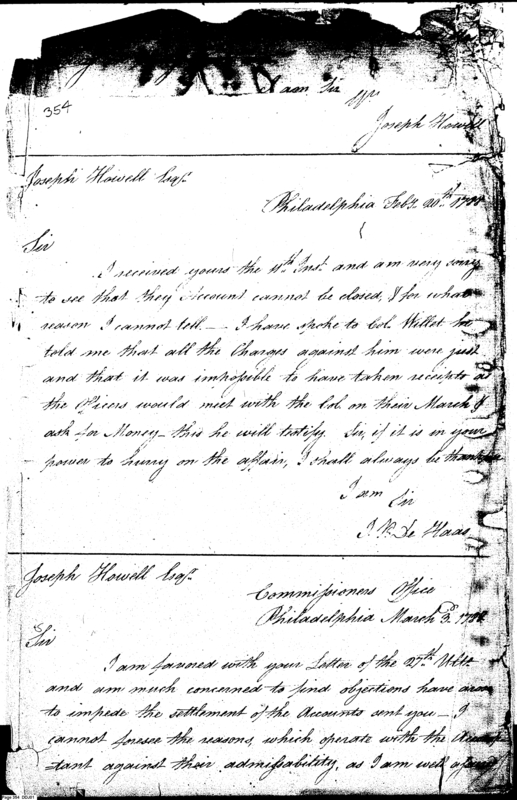 I am Sir
354
Joseph Howell
Joseph Howell Esqr.
Philadelphia Feby. 20th. 1788
Sir
I received yours the 11th. Inst. and am very sorry
to see that they Account cannot be closed, & for what
reason I cannot tell. — I have spoke to Col. Willet he
told me that all the Charges against him were just
and that it was impossible to have taken receipts as
the Officers would meet with the Col. on their March &
ask for Money — this he will testify. Sir, if it is in your
power to hurry on the affair, I shall always be thankful
I am
Sir
J. P. De Haas
Joseph Howell Esqr.
Commissioners Office
Philadelphia March 3d. 1788
Sir
I am favored with your Letter of the 27th Ulto.
and am much concerned to find objections have arose
to impede the settlement of the Accounts sent you — I
cannot foresee the reasons, which operate with the Accomp
tant against their admissability, as I am well
Page 354